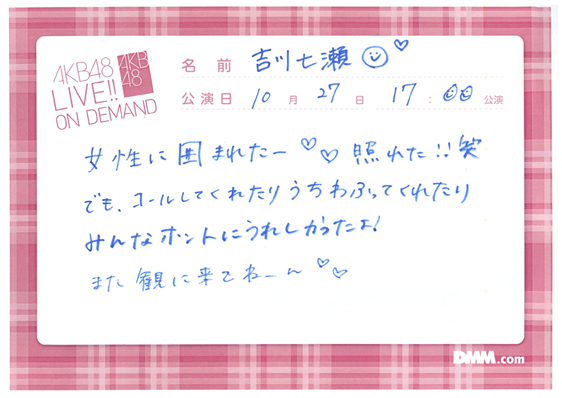 AKB48
LIVE!!
ON DEMAND
AKB
48
名 前 吉川七瀬
公演日 10 月 27 日 17:00 公演
女性に囲まれたー♡♡ 照れた!!笑
でも、コールしてくれたりうちわふってくれたり
みんなホントにうれしかったよ!
また観に来てねーん♡♡
DMM.com